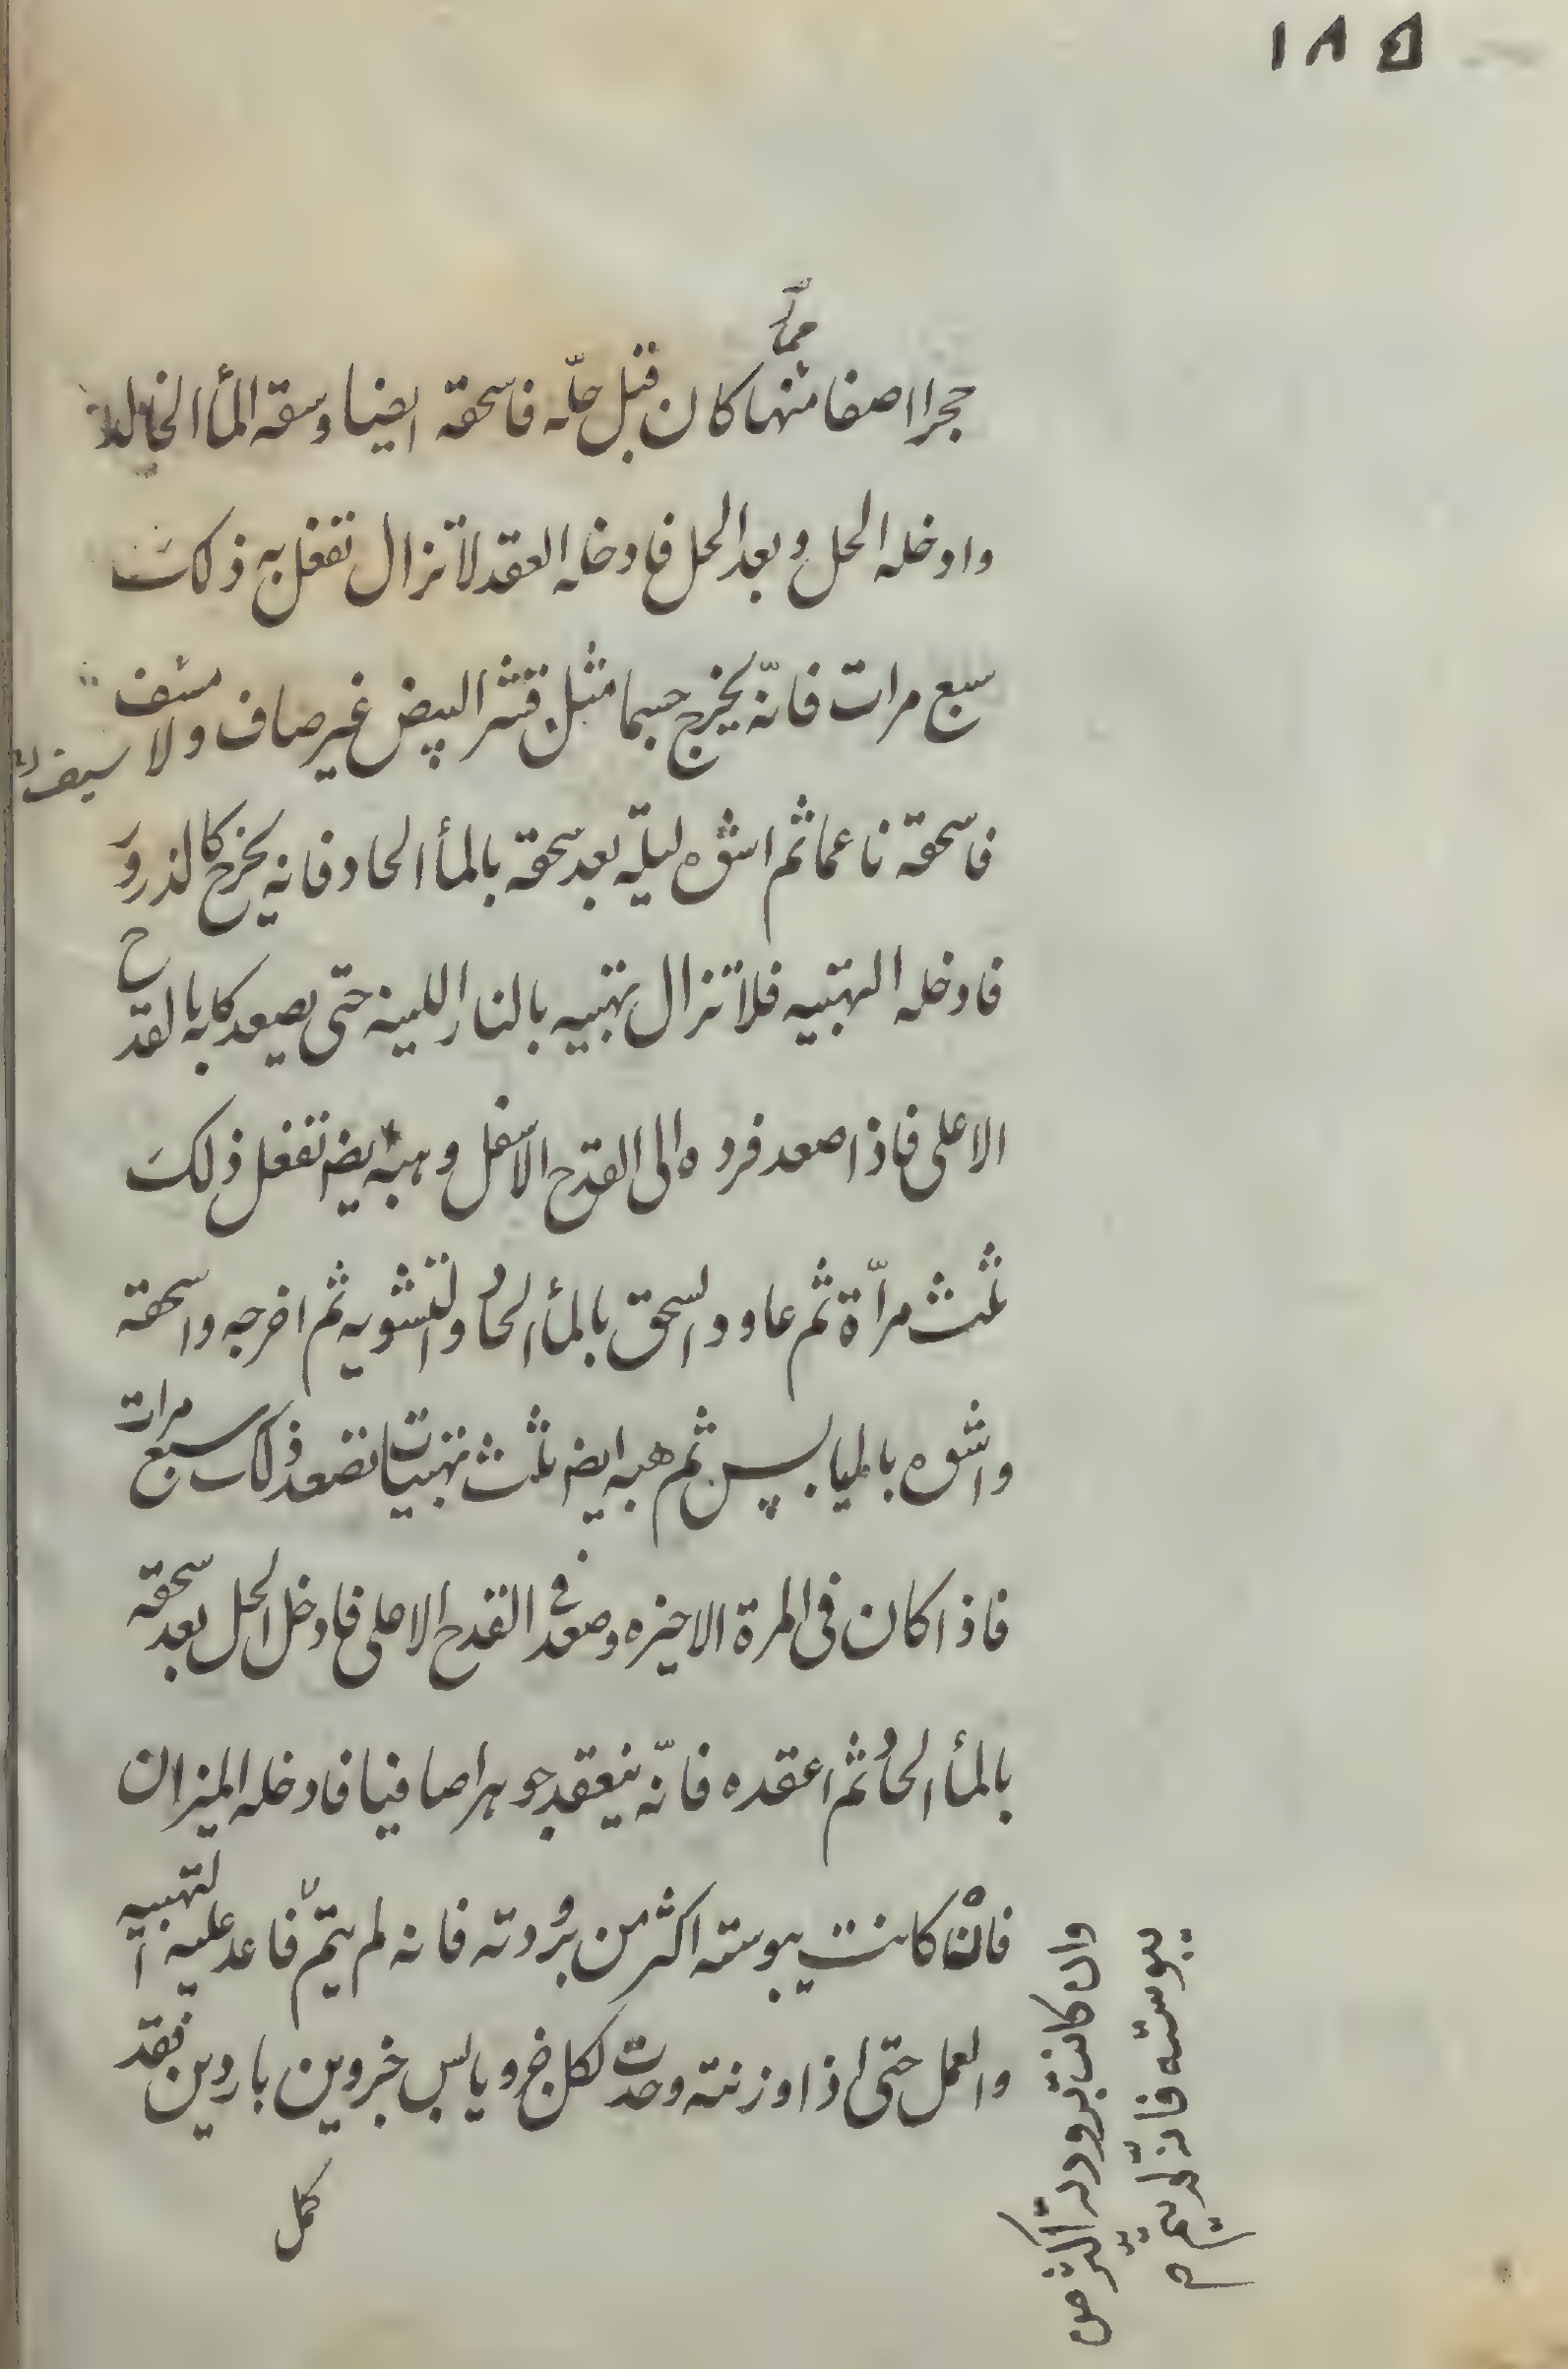 ١٨٥
ممّا
حجرا اصفا منها كان قبل حلّه فاسحقه ايضا وسقه المأ الخالد
وادخله الحل وبعد الحل فادخله العقد لا تزال تفعل به ذلك
سبع مرات فانّه يخرج جسما مثل قشر البيض غير صاف ولا مشف
فاسحقه ناعما ثم اشوه ليلة بعد سحقه بالمأ الحاد فانه يخرج كالذرور
فادخله التهبيه فلا تزال تهبيه بالنار اللينة حتى يصعد كابه بالقدح
الاعلى فاذا صعد فرده الى القدح الاسفل وهبه ايضه تفعل ذلك
ثلث مرّاة ثم عاود السحق بالمأ الحاد والتشويه ثم اخرجه واسحقه
واشوه بالميابس ثم هبه ايضه ثلث تهبيات تصعد ذلك سبع مرات
فاذا كان فى المرة الاخيره وصعد فى القدح الاعلى فادخل الحل بعد سحقه
بالمأ الحاد ثم اعقده فانّه ينعقد جوهرا صافيا فادخله الميزان
فان كانت يبوسته اكثر من برودته فانه لم يتم فاعد عليه التهبيه
والعمل حتى اذا وزنته وجدت لكل جزو يابس جزوين باردين فقد
كمل
وان كانت برودته اكثر من
يبوسته فانّه لم يتم